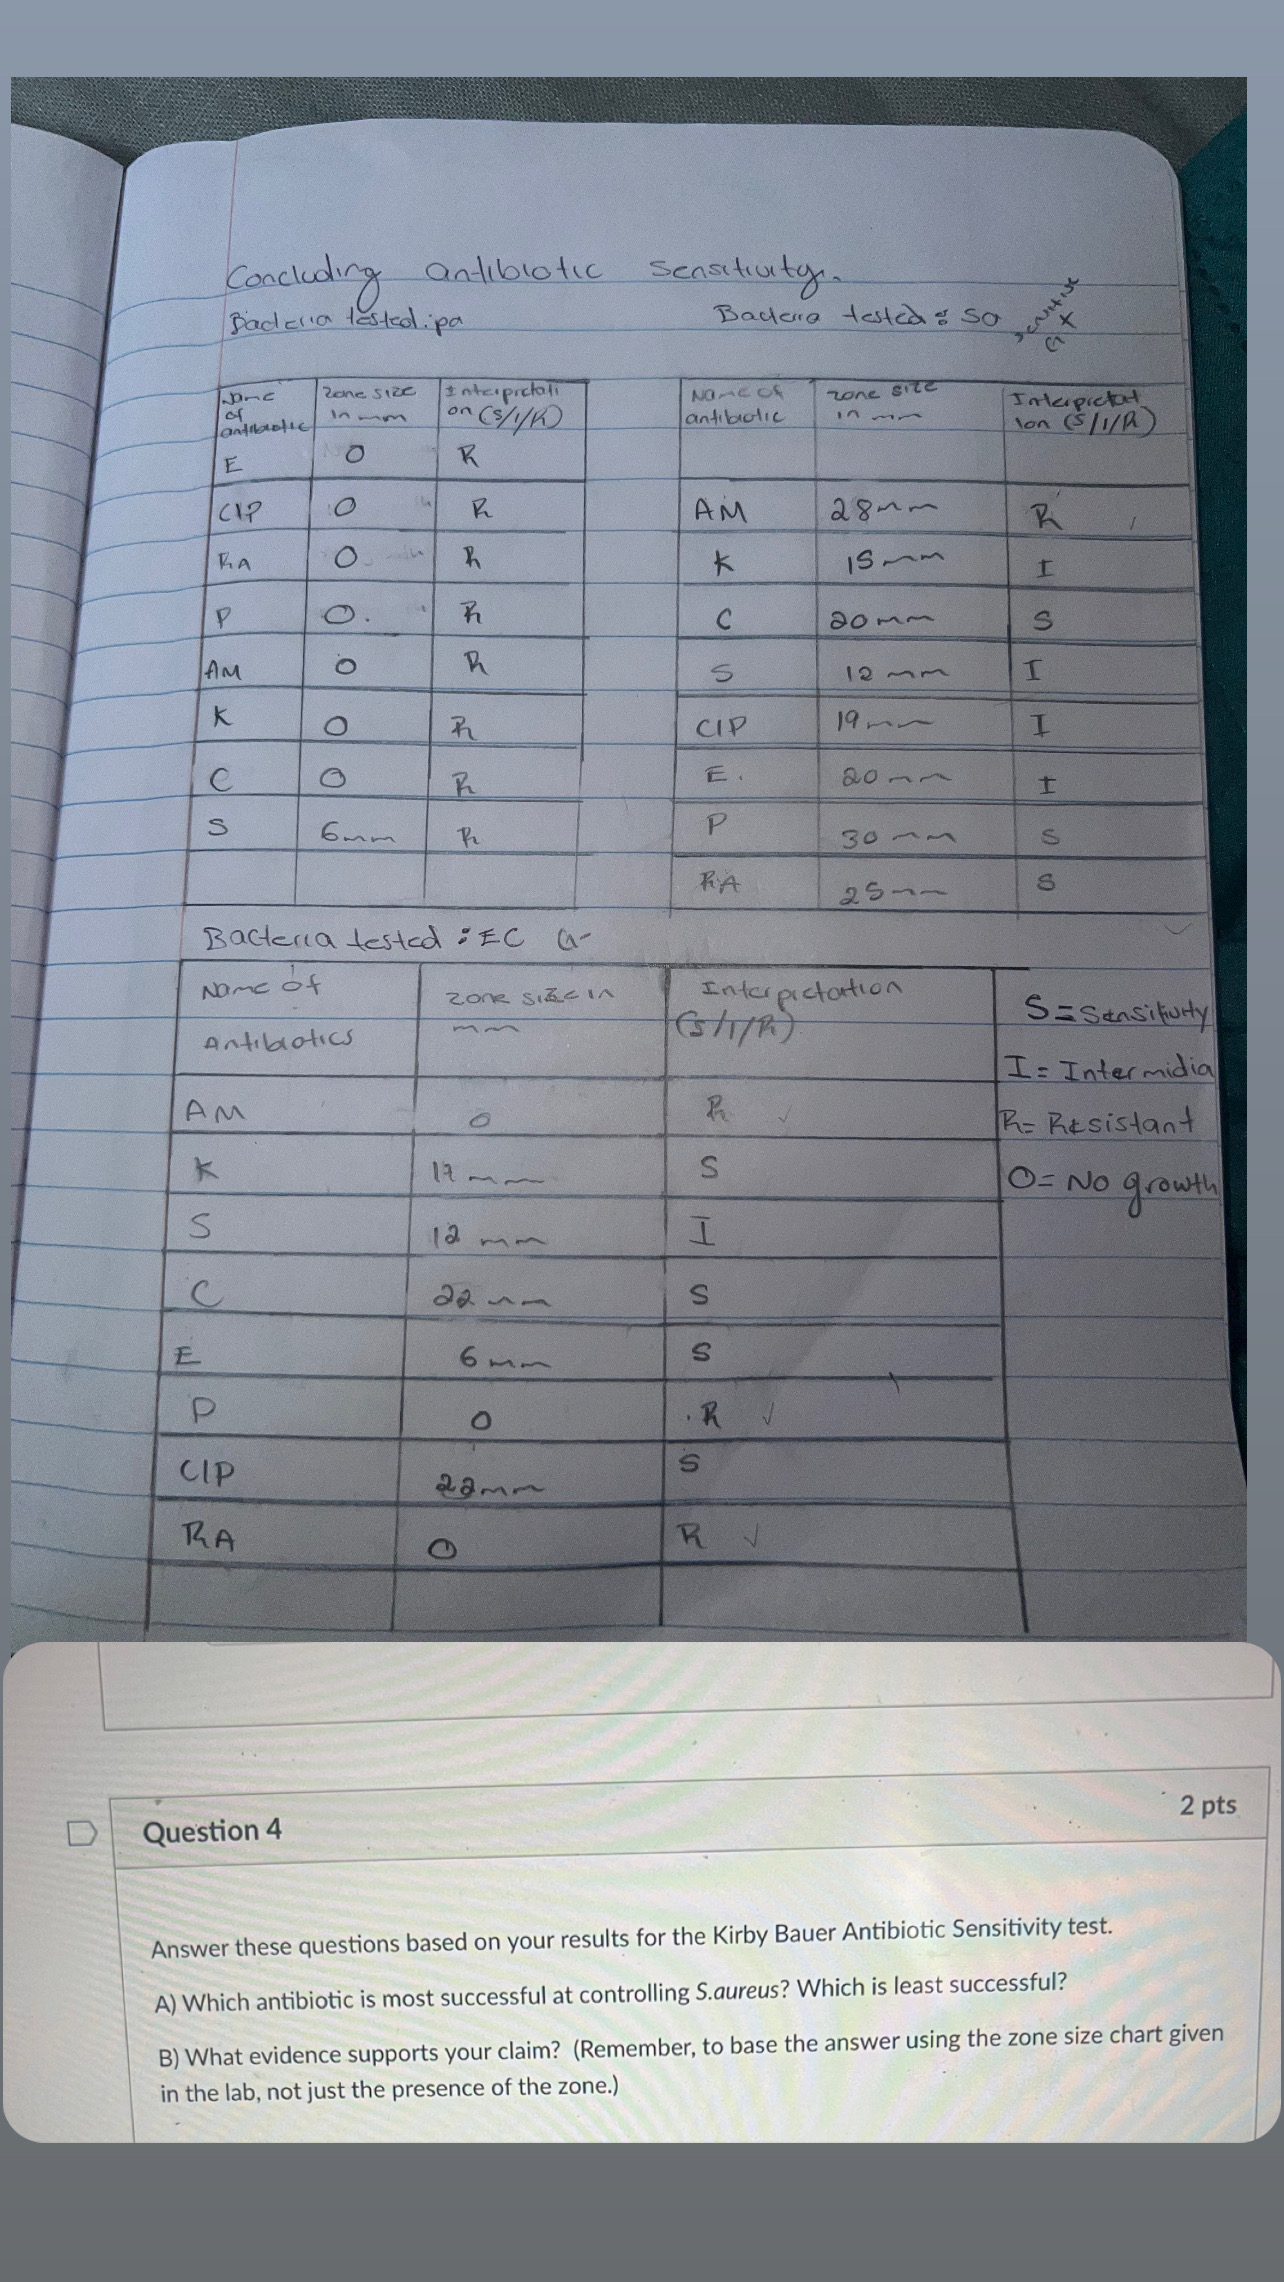 Concluding antibiotic sensitivity.
Bacteria tested: pa
Bacteria tested: Sa
G +
Name of antibiotic | Zone size in mm | Interpretation (S/I/R)
E | 0 | R
CIP | 0 | R
RA | 0 | R
P | 0. | R
AM | 0 | R
K | 0 | R
C | 0 | R
S | 6mm | R
Name of antibiotic | zone size in mm | Interpretation (S/I/R)
AM | 28mm | R
K | 15mm | I
C | 20mm | S
S | 12mm | I
CIP | 19mm | I
E. | 20mm | I
P | 30mm | S
RA | 25mm | S
Bacteria tested: EC G-
Name of Antibiotics | zone size in mm | Interpretation (S/I/R)
AM | 0 | R ✓
K | 17mm | S
S | 12mm | I
C | 22mm | S
E | 6mm | S
P | 0 | R ✓
CIP | 22mm | S
RA | 0 | R ✓
S = Sensitivity
I = Intermidia
R = Resistant
O = No growth
Question 4
2 pts
Answer these questions based on your results for the Kirby Bauer Antibiotic Sensitivity test.
A) Which antibiotic is most successful at controlling S.aureus? Which is least successful?
B) What evidence supports your claim? (Remember, to base the answer using the zone size chart given
in the lab, not just the presence of the zone.)